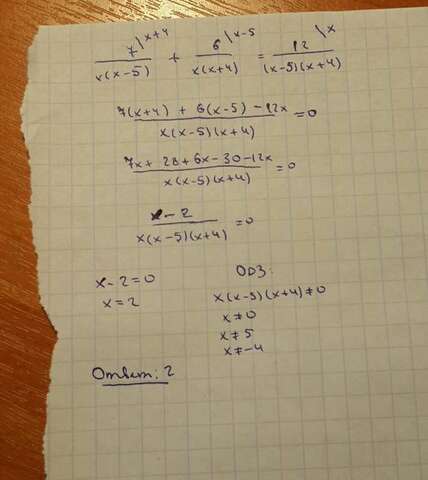 7\x+4 / x(x-5) + 6\x-5 / x(x+4) = 12\x / (x-5)(x+4)
7(x+4) + 6(x-5) - 12x / x(x-5)(x+4) = 0
7x + 28 + 6x - 30 - 12x / x(x-5)(x+4) = 0
x - 2 / x(x-5)(x+4) = 0
x - 2 = 0
x = 2
ОДЗ:
x(x-5)(x+4) ≠ 0
x ≠ 0
x ≠ 5
x ≠ -4
Ответ: 2